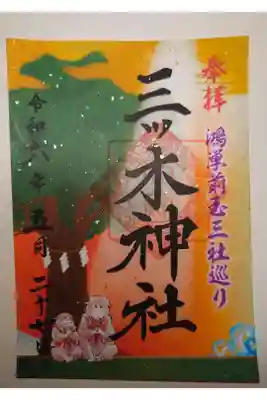 奉拝
鴻巣前玉三社巡り
三ッ木神社
令和六年五月二十七日